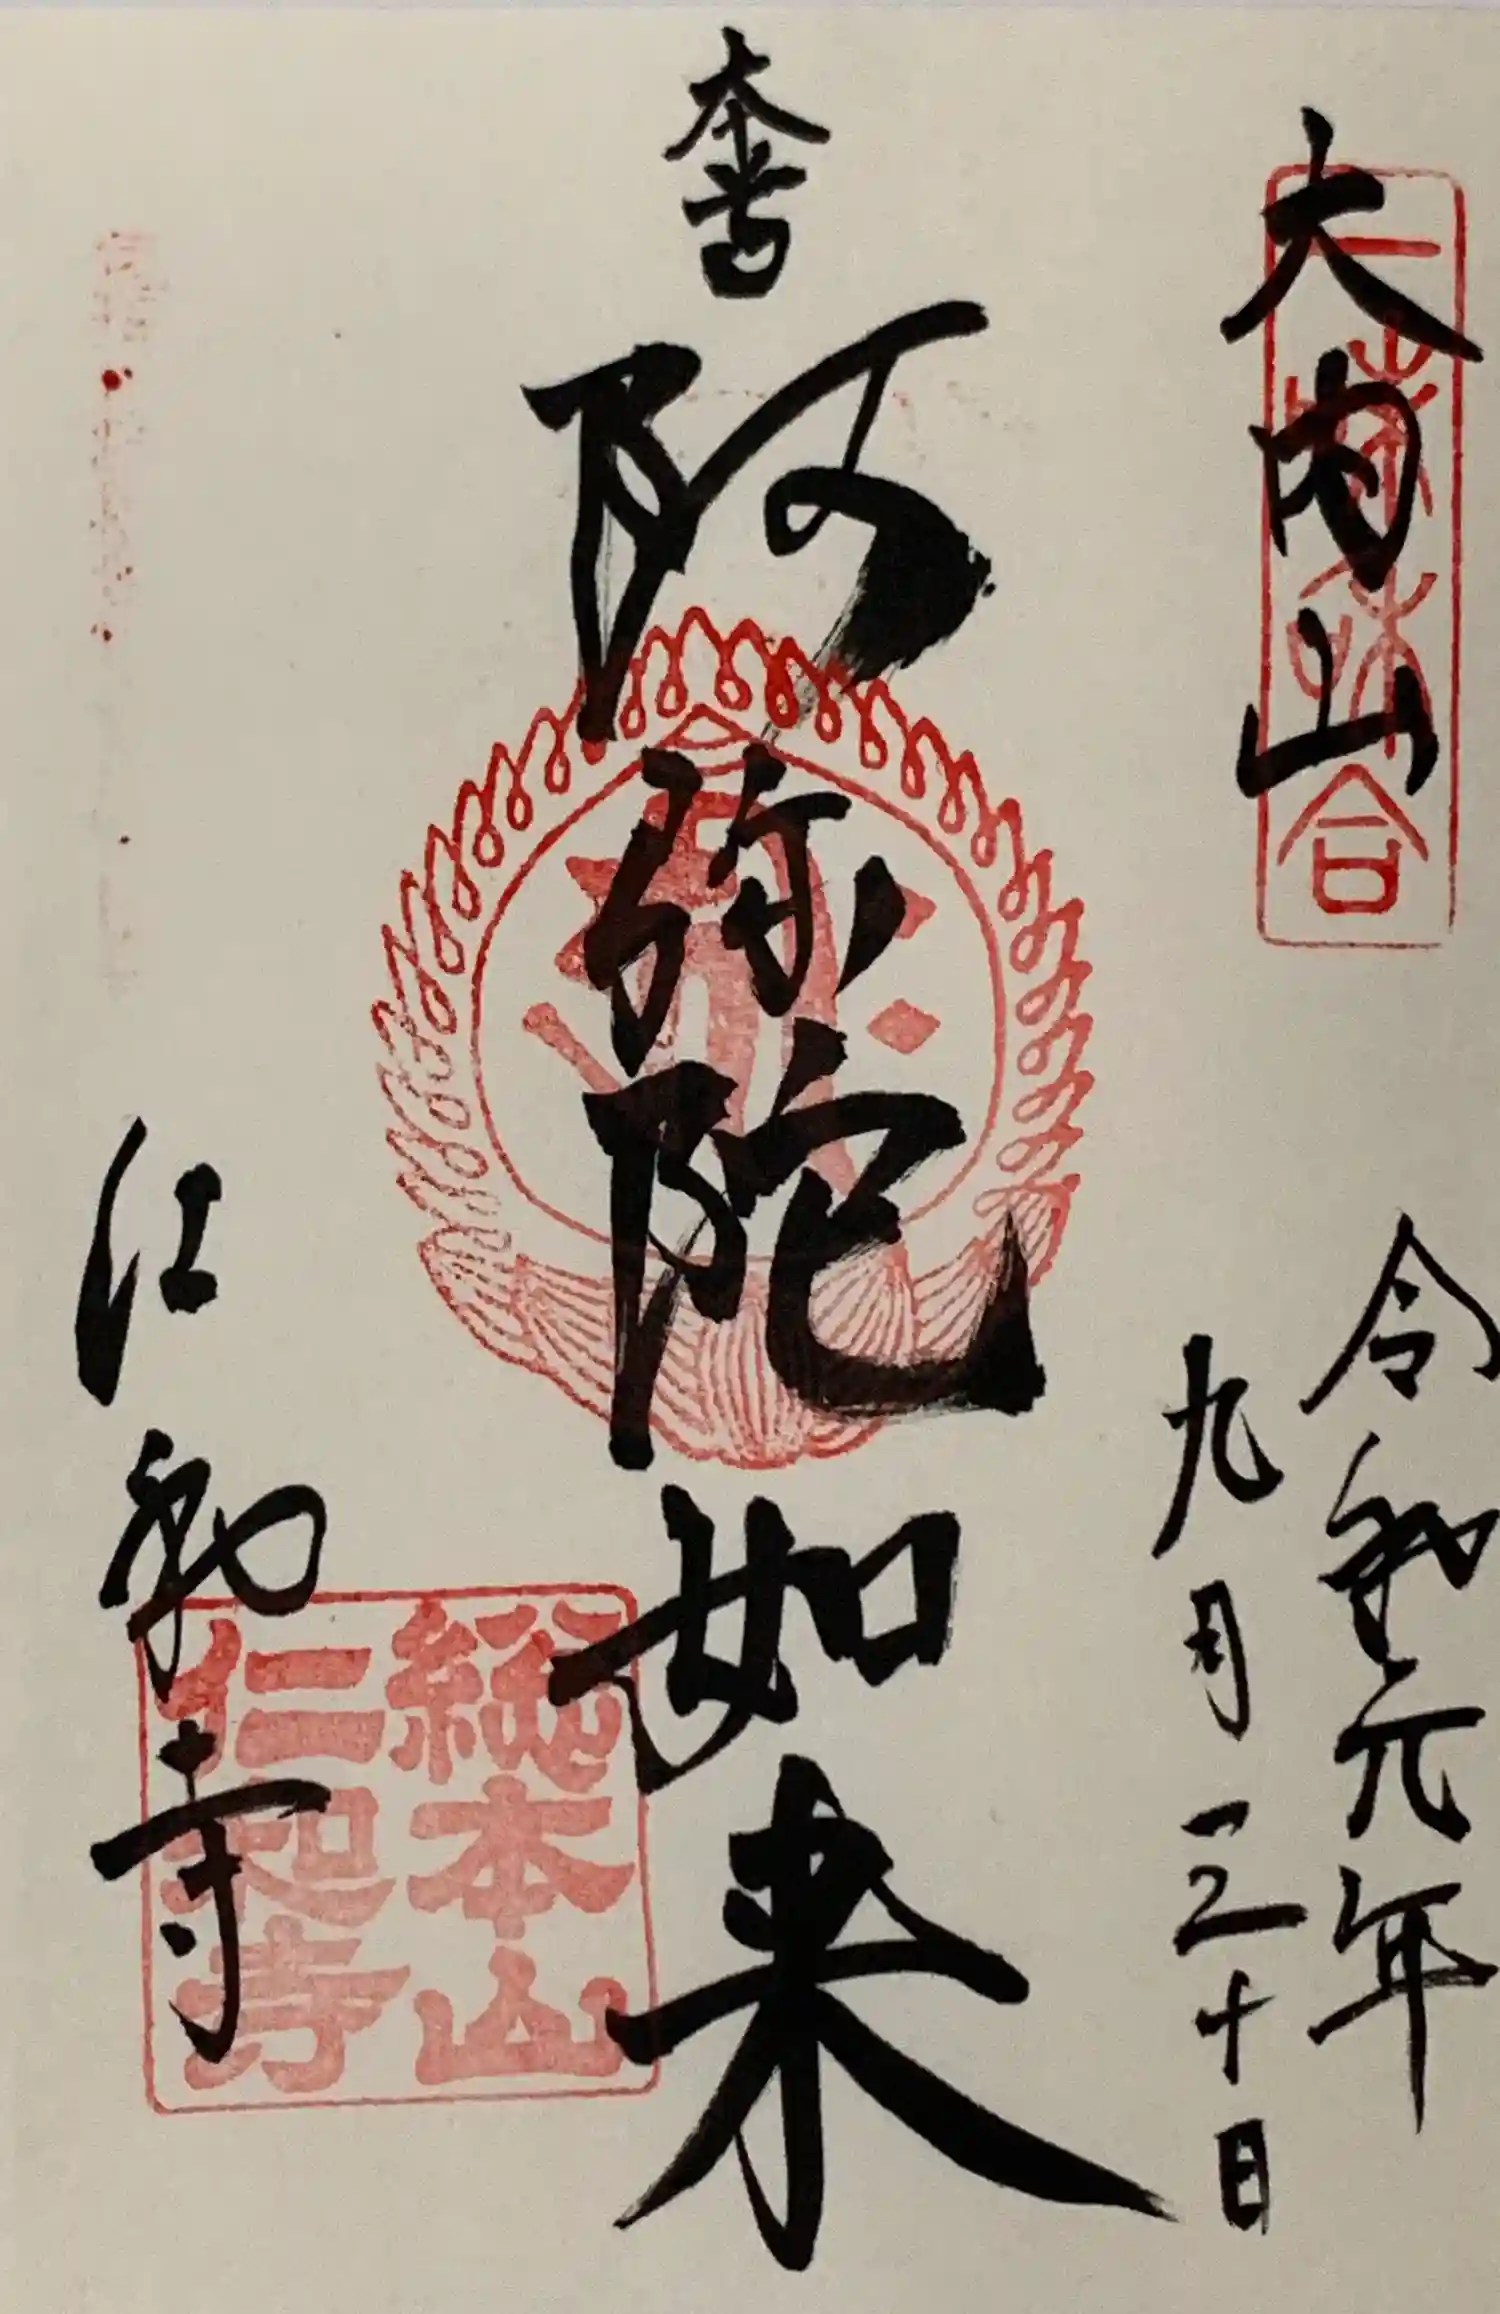 大内山
令和元年
九月三十日
阿弥陀如来
仁和寺
総本山
仁和寺